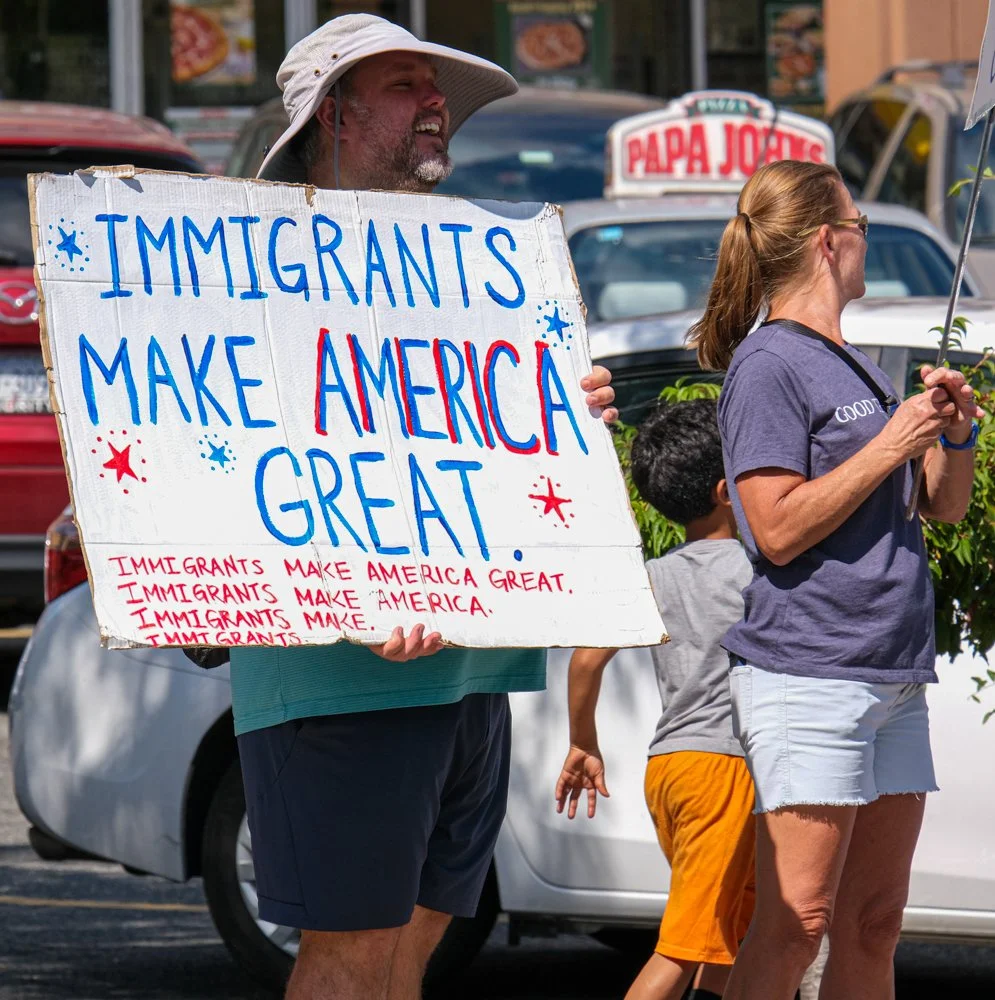 IMMIGRANTS
MAKE AMERICA
GREAT.
IMMIGRANTS MAKE AMERICA GREAT.
IMMIGRANTS MAKE AMERICA.
IMMIGRANTS MAKE.
IMMIGRANTS.
PIZZA
PAPA JOHNS
GOOD